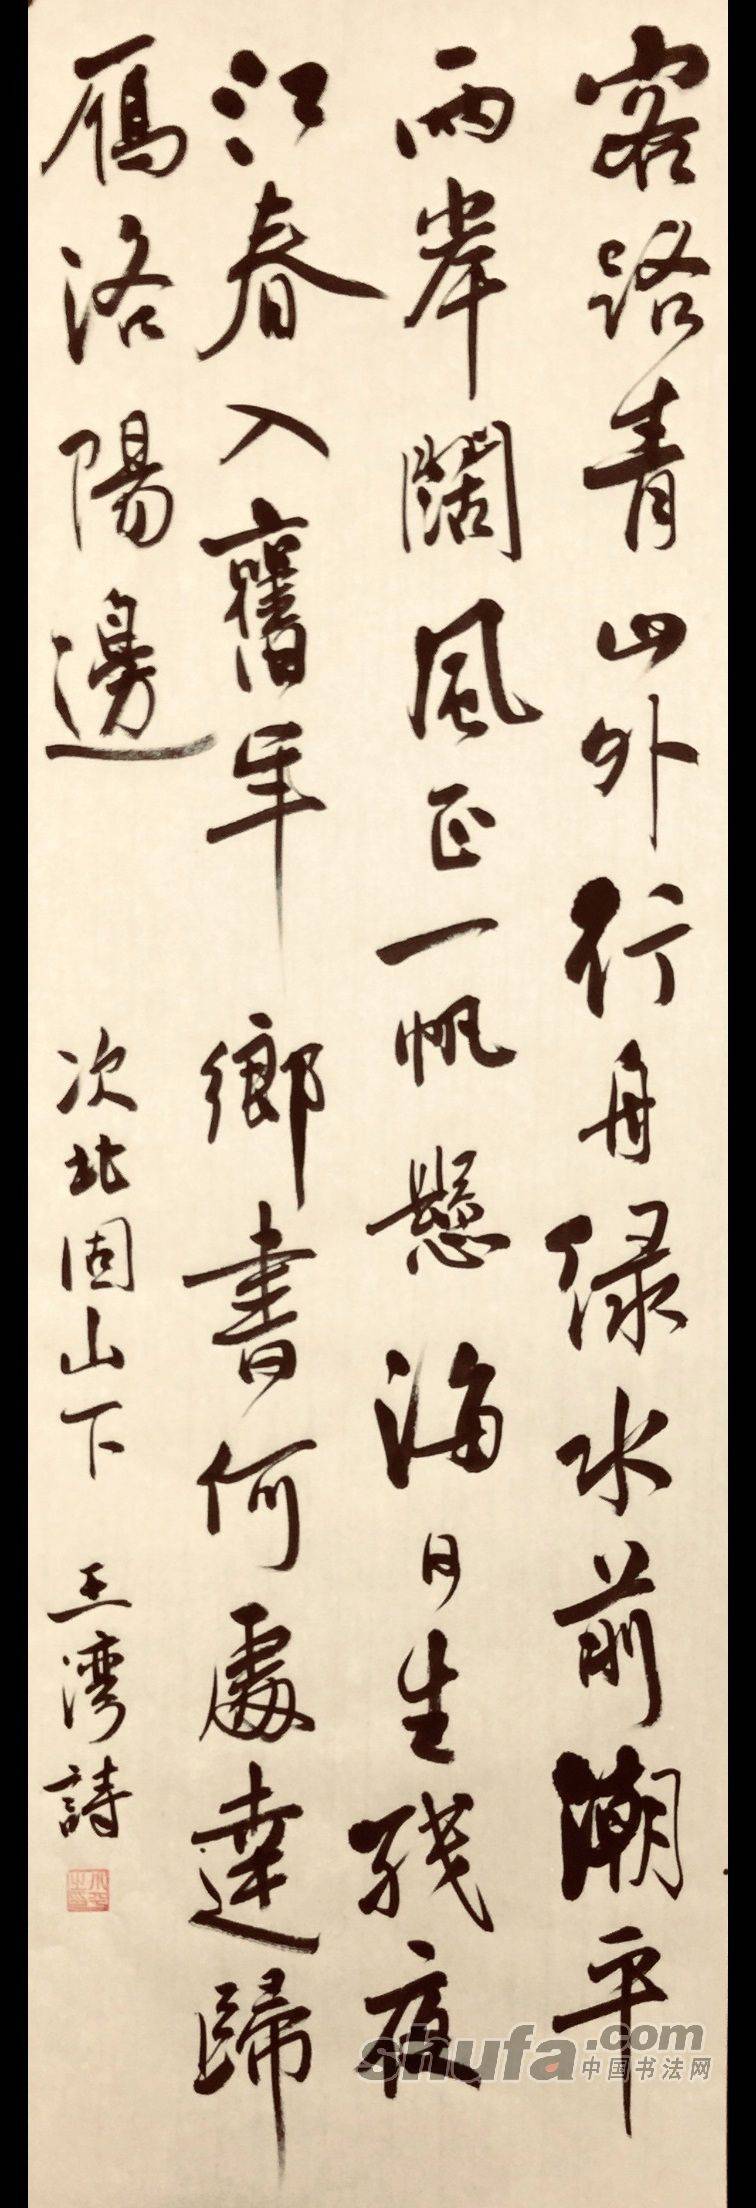 客路青山外行舟绿水前潮平
兩岸闊風正一帆懸海日生残夜
江春入舊年鄉書何處達歸
雁洛陽邊
次北固山下 王湾詩
shufa.com
中国书法网